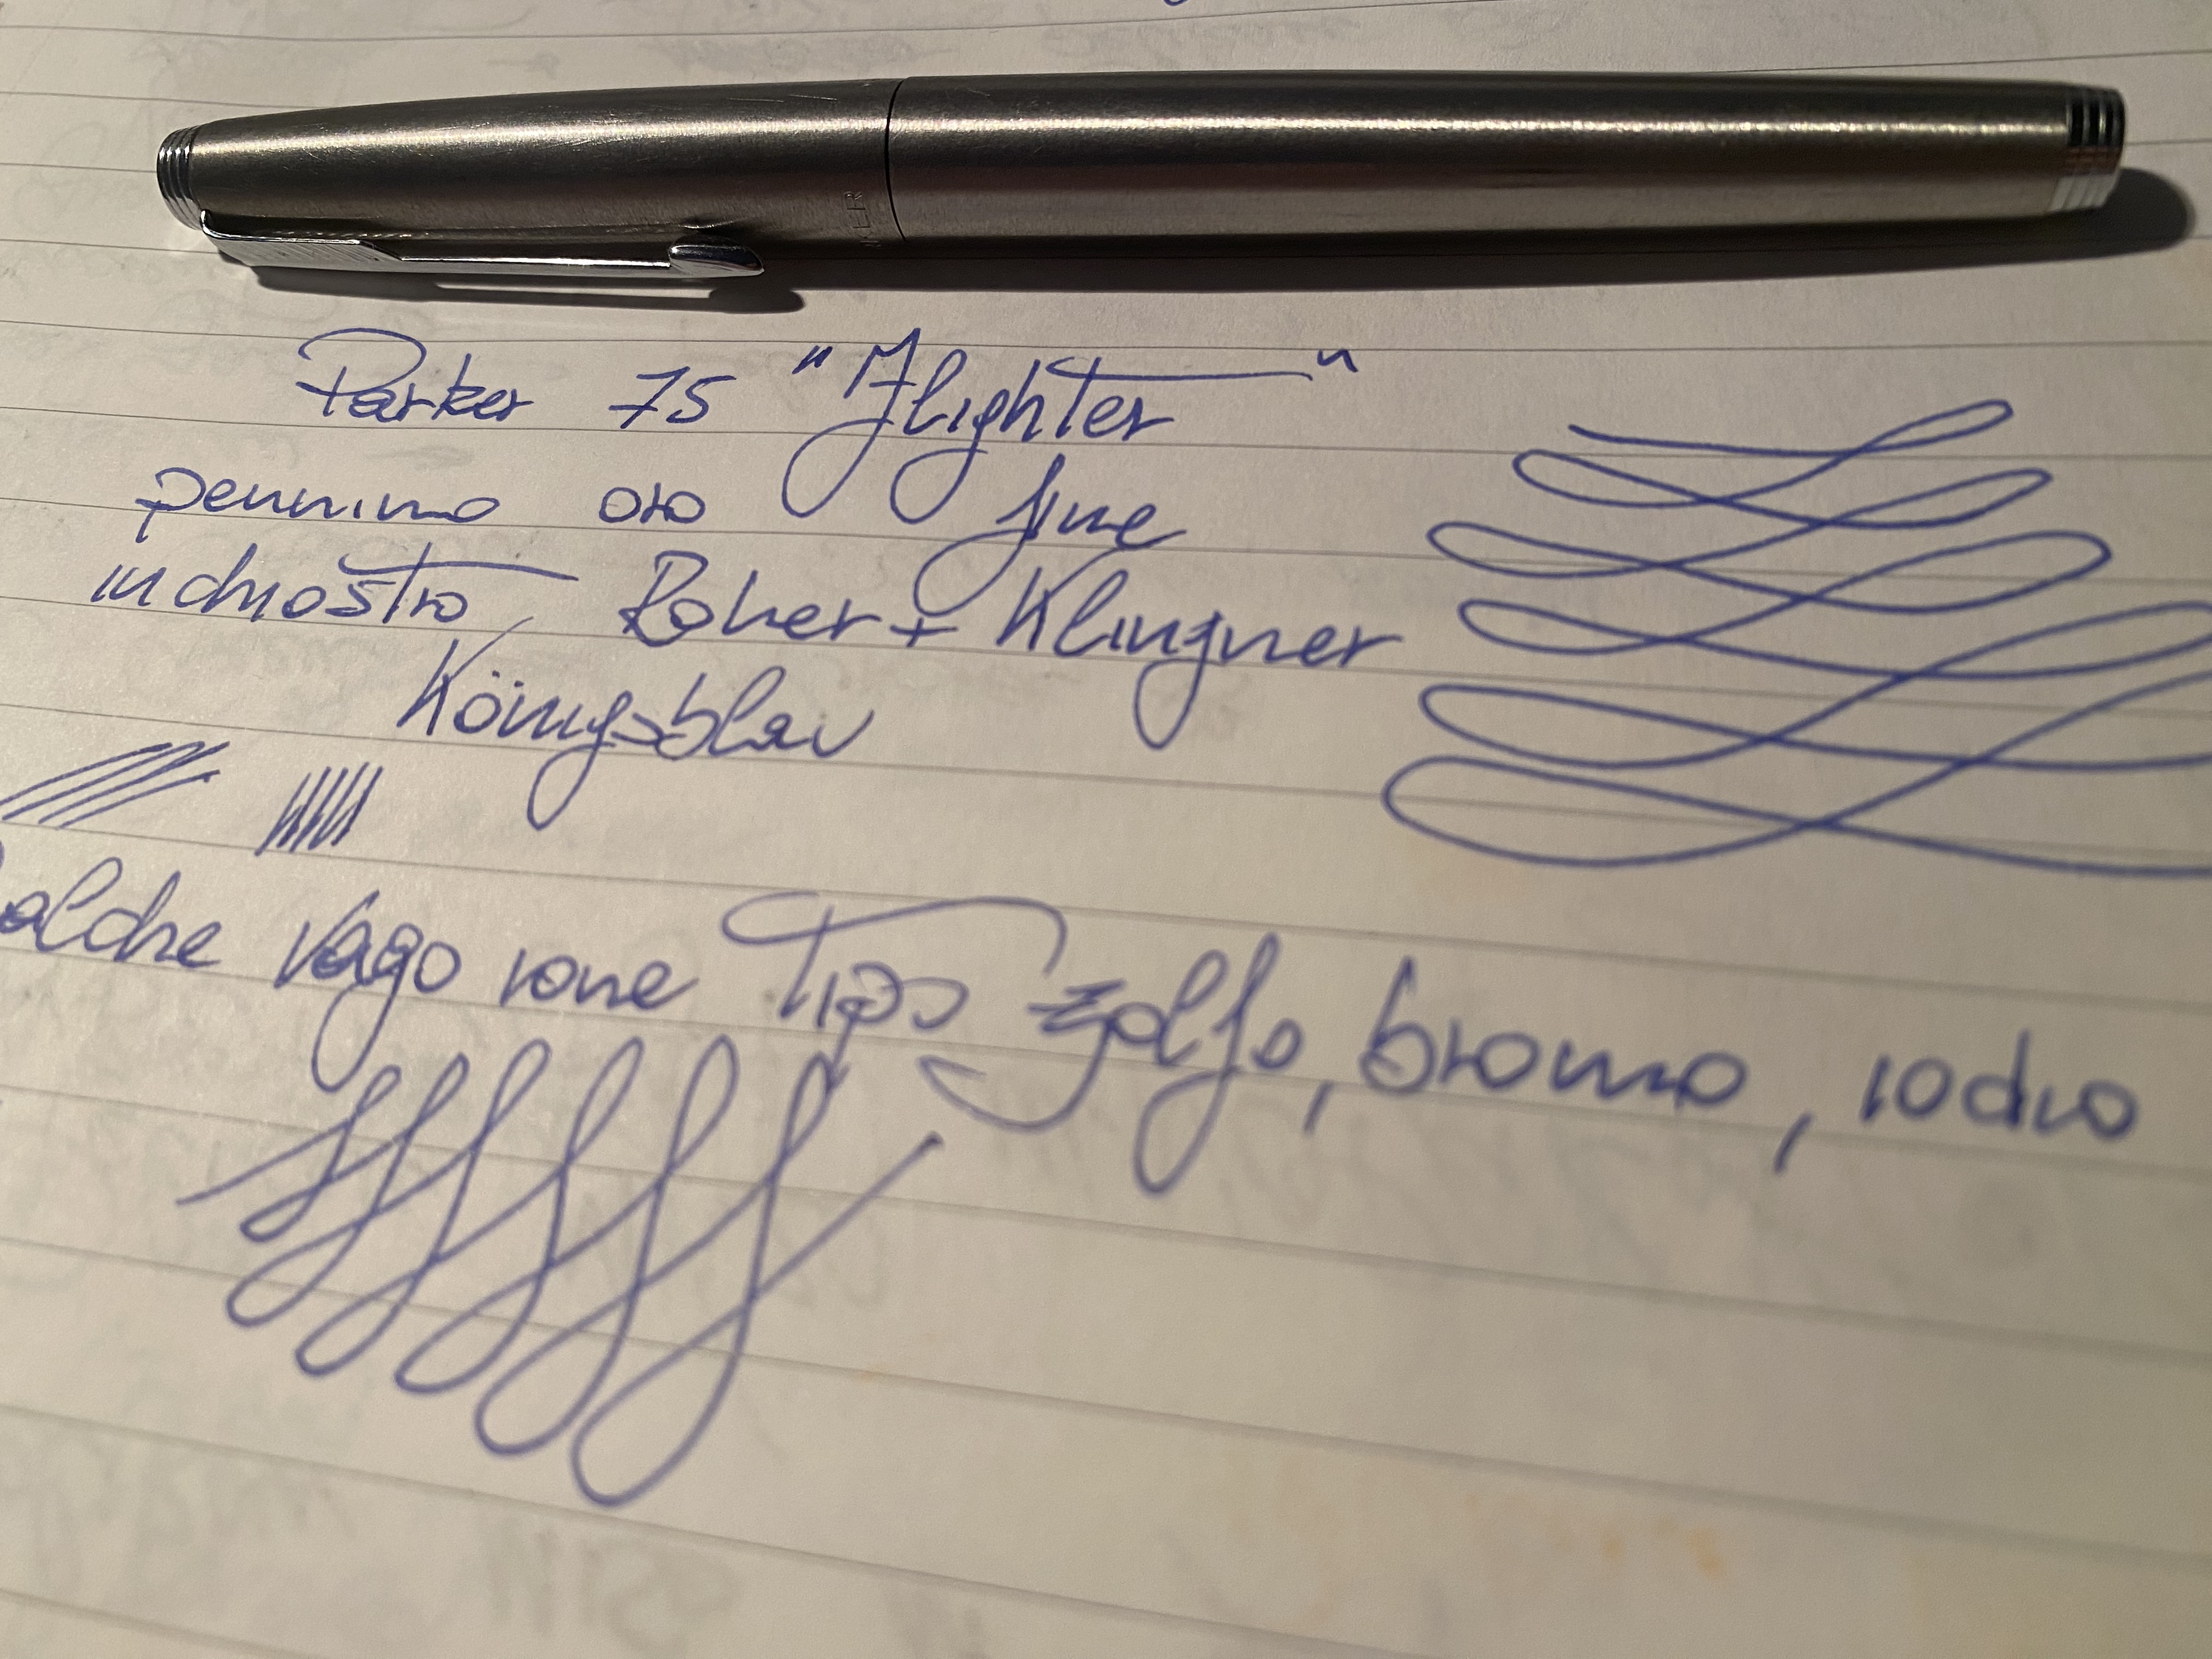 Parker 75 "Flighter"
pennino oro fine
inchiostro, Roher + Klingner
Königsblau
qualche vago ione tipo zolfo, bromo, iodio